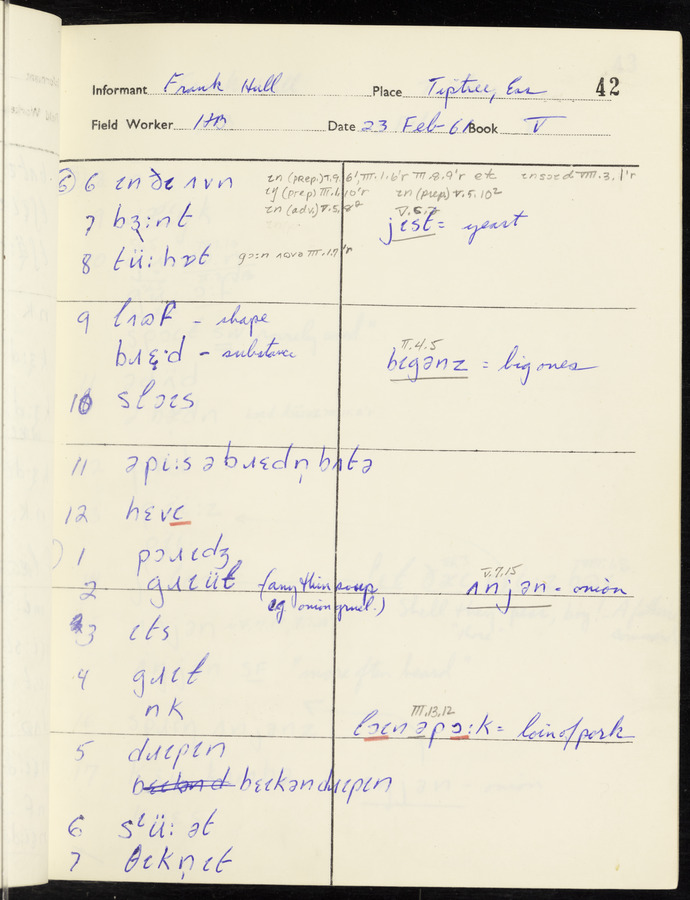 Informant Frank Hull Place Tiptree, Ess 42
Field Worker HB Date 23 Feb 61 Book V
6) 6 ɪn ðɛ ʌvn ɪn (prep.) V.9.6', III.1.6'r III.8.9'r etc
ɪn (prep) V.5.10²
ɪn (adv.) V.5.8²
7 bɜ̨:nt
jɛst = yeast
8 tü:hɒt
9 lɹɷf - shape
bɹɛ̨·d - substance
II.4.5
bɪgənz = big ones
10 slɔɪs
11 əpi:s əbɹɛdn̩ bʌtə
12 hɛvɪ
1 pɔɹɪdʒ
2 gɹɪüɫ (any thin soup
eg onion gruel.)
V.7.15
ʌnjən - onion
3 ɪts
4 gɹɪt
nk
III.13.12
lɔɪn əpɔ:k = loin of pork
5 dɹɪpɪn
bɛɪkəndɹɪpɪn
6 sᶫü:ət
7 θɪkn̩ɪt